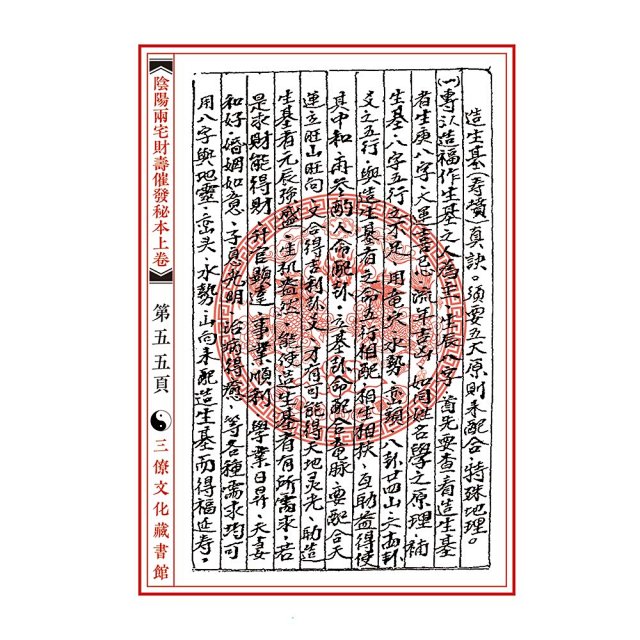 造生基(寿墳)真訣。须要五大原则来配合,特殊地理。
(一)專以造福作生基之人為主,生辰八字,首先要查看造生基
者生庚八字,大運喜忌,流年吉凶,如同姓名學之原理,補
生基八字五行之不足,用龍穴水势,峦頭,八卦廿四山六爻卦
爻之五行,與造生基者之命五行相配,相生相扶,互助益得使
其中和,再参酌人命配卦,立基卦命配合龍脉,要配合天
運立旺山旺向,爻合得吉利卦爻,才有可能得天地灵光,助造
生基者元辰強盛,生机盎然,能使造生基者有所需求,若
是求財能得財,升官顯達,事業順利,學業日昇,夫妻
和好,婚姻如意,子息光明,治病得癒,等各種需求均可
用八字與地靈,峦头,水勢,山向来配造生基而得福延寿。
陰陽兩宅財壽催發秘本上卷
第五五頁
三僚文化藏書館